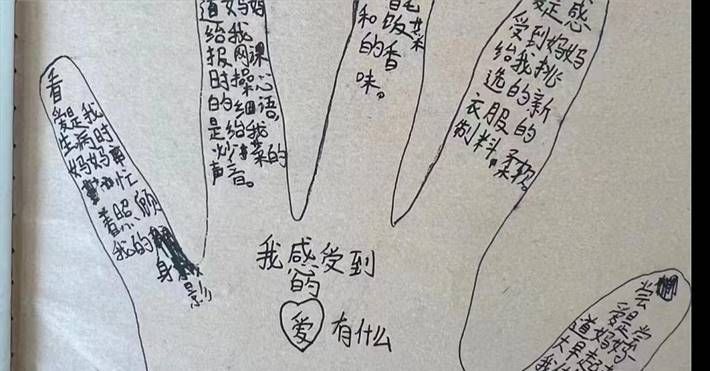 看
爱是我
生病时
妈妈
忙
着照顾
我的
身影
道妈妈
给我
报网课
时操心
的细语。
是给我
炒菜的
声音。
和饭菜
的香
味。
感
受到妈妈
给我挑
选的新
衣服的
制料。柔软。
尝
爱是尝
道妈妈
大早起
我感受到
的
爱有什么